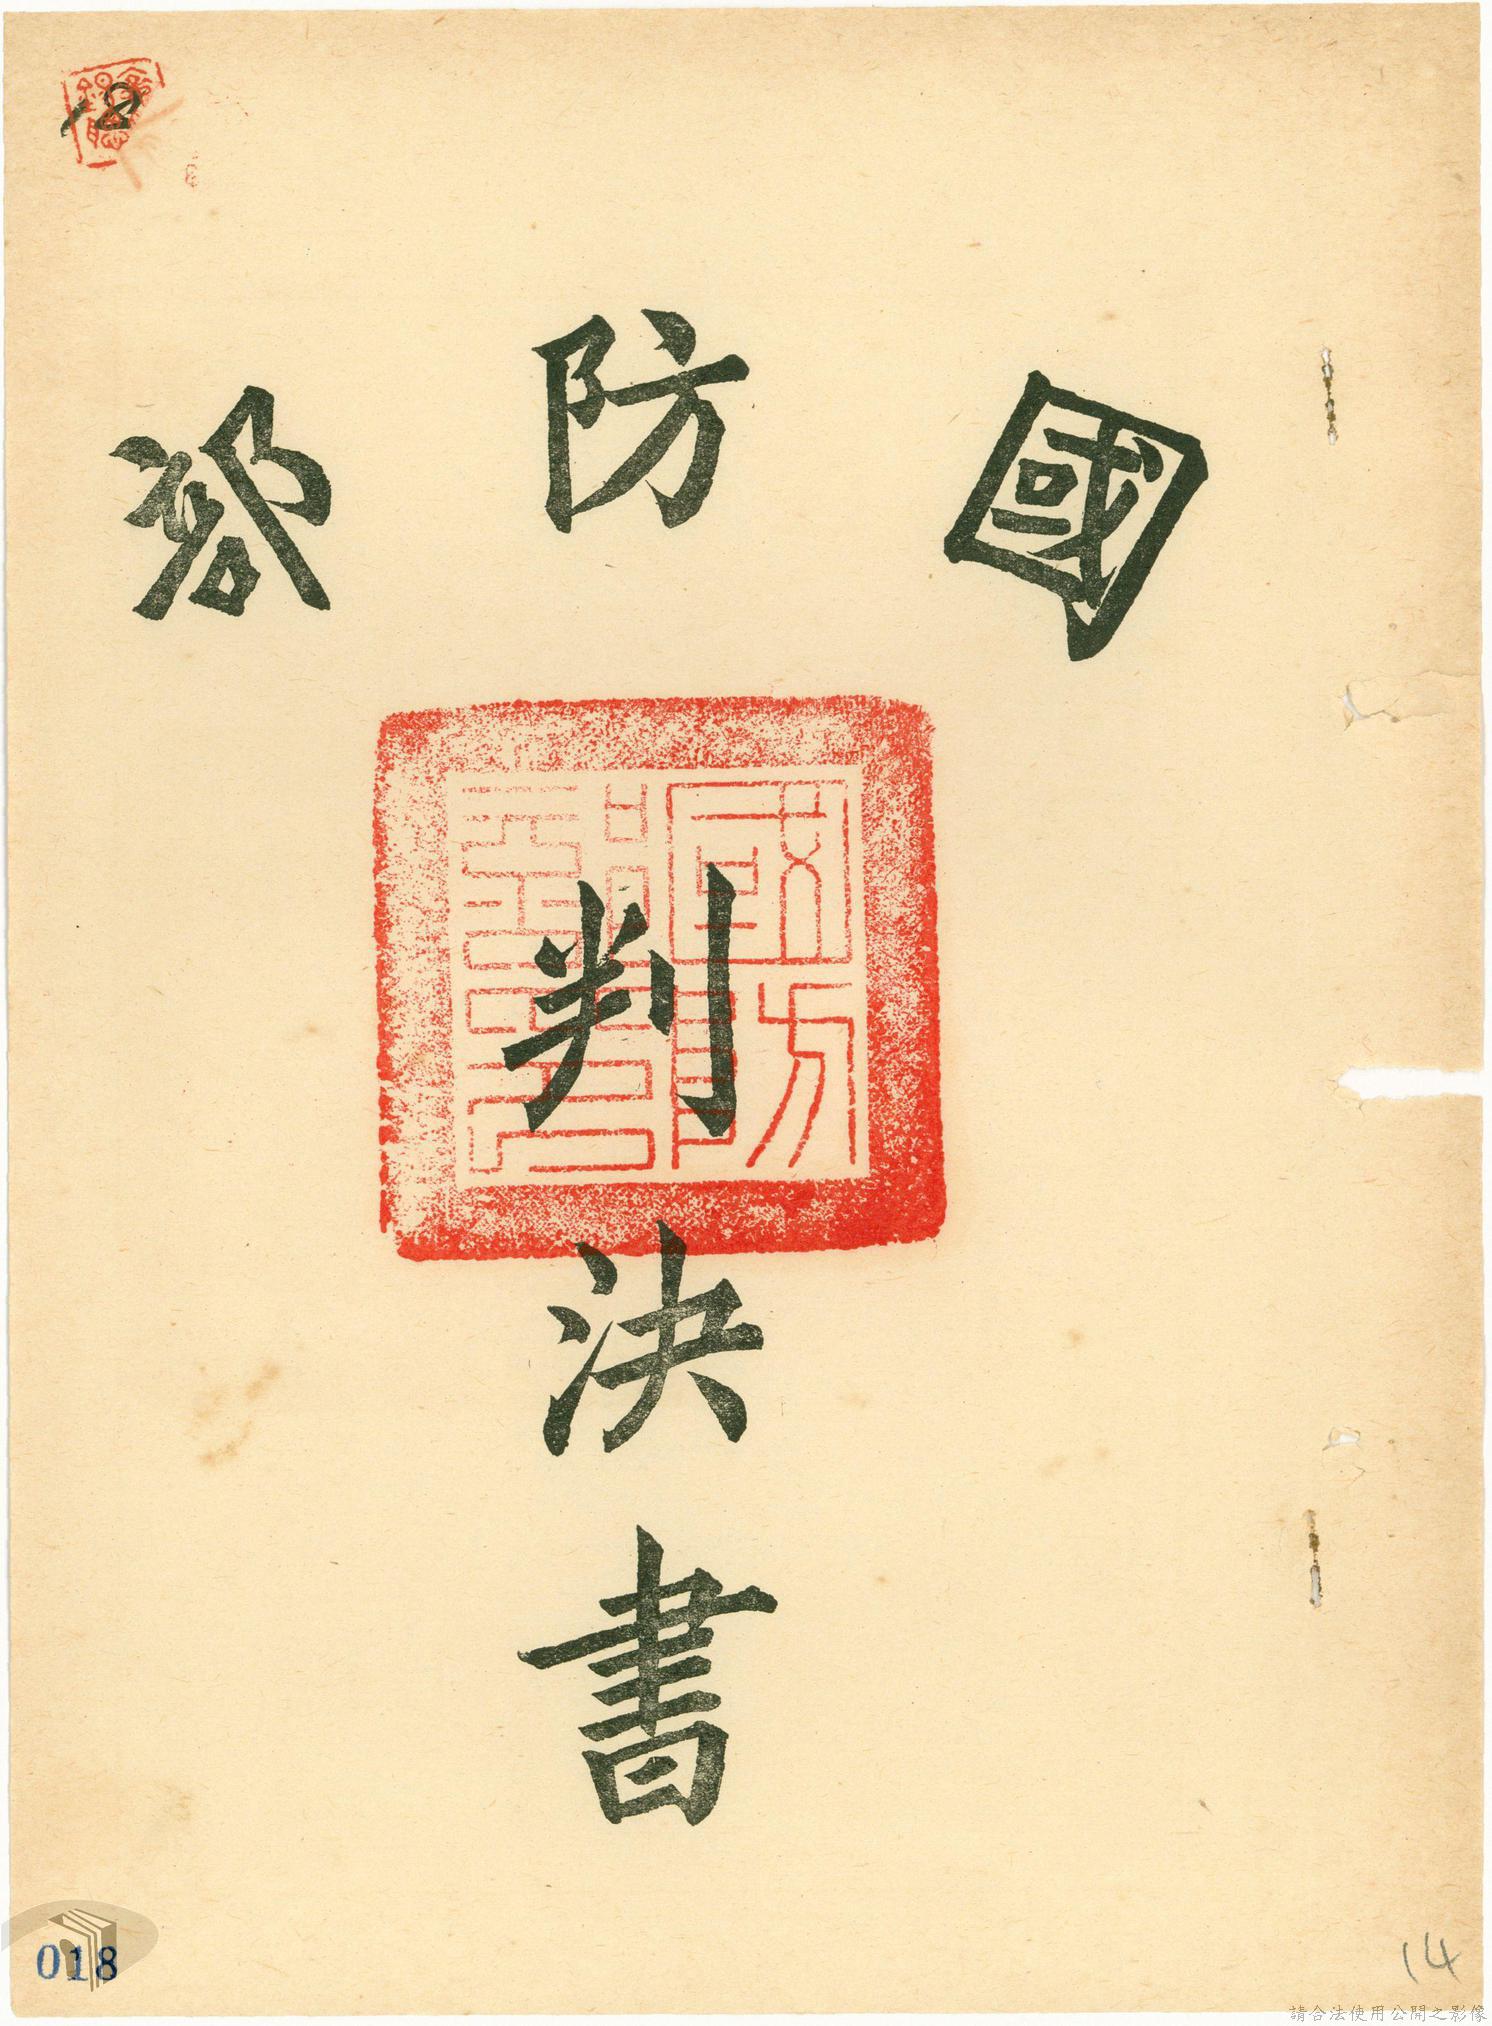 國防部
判決書
國防部印
018
14
請合法使用公開之影像